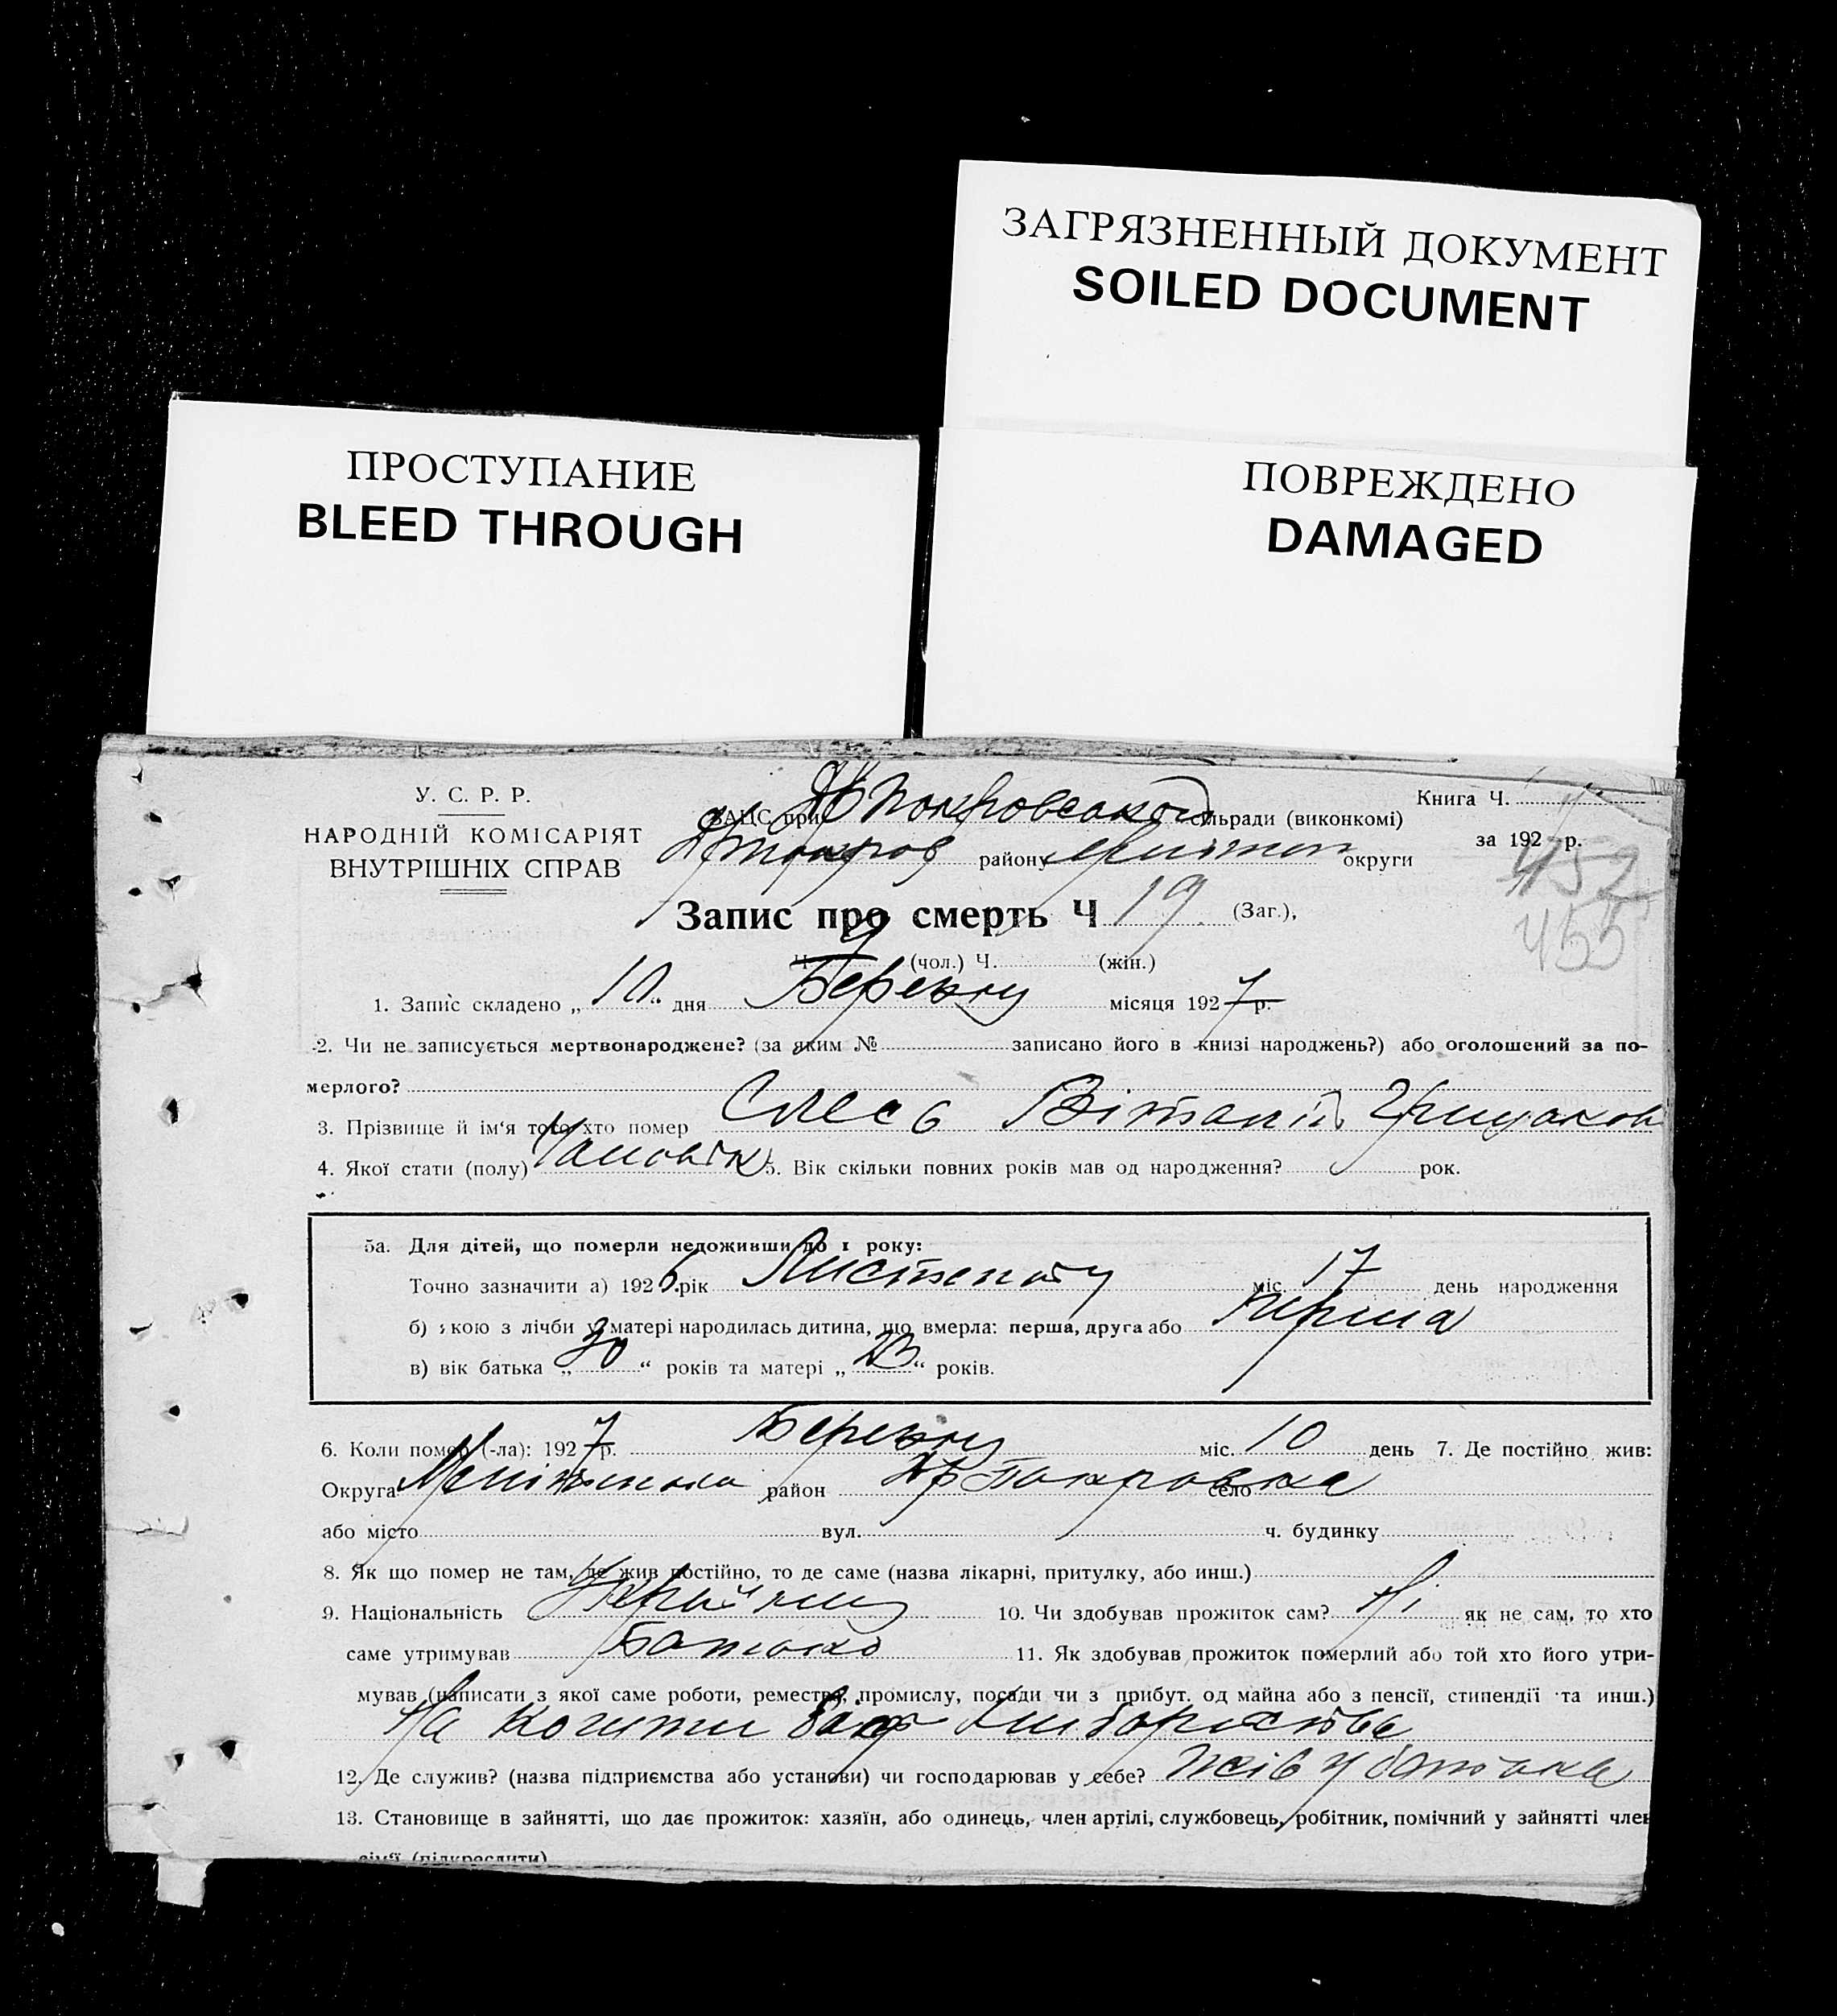 ЗАГРЯЗНЕННЫЙ ДОКУМЕНТ
SOILED DOCUMENT
ПРОСТУПАНИЕ
BLEED THROUGH
ПОВРЕЖДЕНО
DAMAGED
У. С. Р. Р.
НАРОДНІЙ КОМІСАРІЯТ
ВНУТРІШНІХ СПРАВ
Книга Ч.
ЗАЦС при Покровской сільради (виконкомі)
за 192 р.
району округи
452
455
Запис про смерть Ч 19 (Заг.),
Ч. 9 (чол.) Ч. (жін.)
1. Запис складено „ 10 “ дня Березня місяця 1927 р.
2. Чи не записується мертвонароджене? (за яким № записано його в книзі народжень?) або оголошений за по-
мерлого?
3. Прізвище й ім‘я того хто помер Слесь Віталій
4. Якої стати (полу) Чаловік 5. Вік скільки повних років мав од народження? рок.
5а. Для дітей, що померли недоживши до 1 року:
Точно зазначити а) 1926 рік Листопаду міс. 17 день народження
б) якою з лічби у матері народилась дитина, що вмерла: перша, друга або перша
в) вік батька „ 30 “ років та матері „ 23 “ років.
6. Коли помер (-ла): 1927 р. Березня міс. 10 день 7. Де постійно жив:
Округа район село Покровка
або місто вул. ч. будинку
8. Як що помер не там, де жив постійно, то де саме (назва лікарні, притулку, або инш.)
9. Національність 10. Чи здобував прожиток сам? Ні як не сам, то хто
саме утримував Батько 11. Як здобував прожиток померлий або той хто його утри-
мував (написати з якої саме роботи, ремества, промислу, посади чи з прибут. од майна або з пенсії, стипендії та инш.)
На кошти від хліборобства
12. Де служив? (назва підприємства або установи) чи господарював у себе? жів у батька
13. Становище в зайнятті, що дає прожиток: хазяїн, або одинець, член артілі, службовець, робітник, помічний у зайнятті член
сім‘ї (підкреслити)